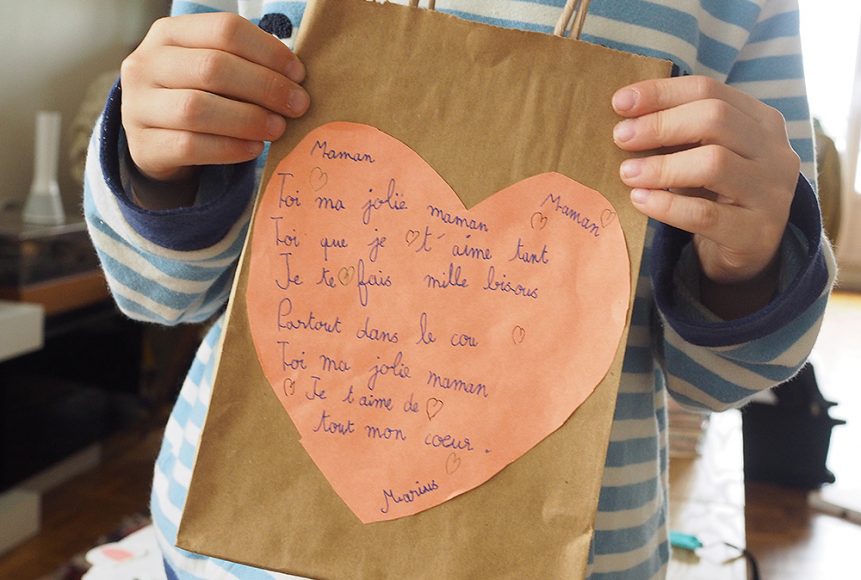 Maman
Maman
Toi ma jolie maman
Toi que je t'aime tant
Je te fais mille bisous
Partout dans le cou
Toi ma jolie maman
Je t'aime de
tout mon coeur.
Marius